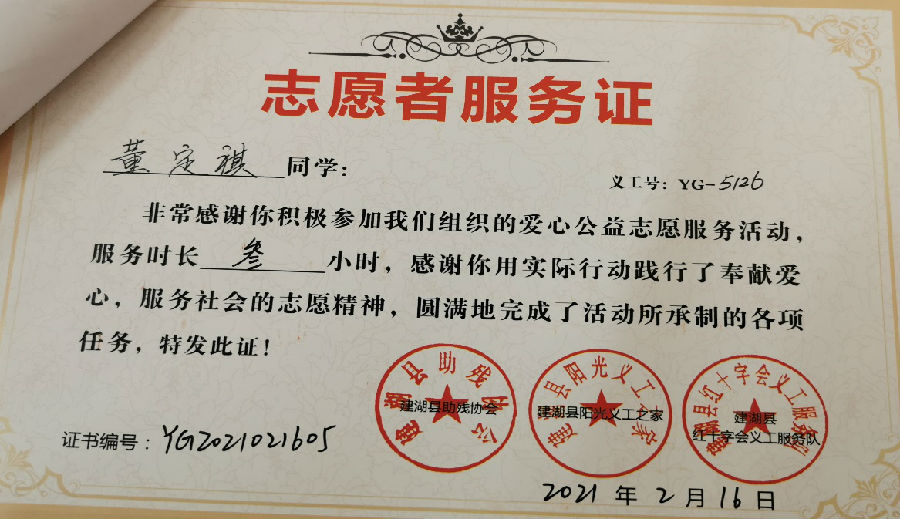 志愿者服务证
董定祺同学：
义工号：YG-5126
非常感谢你积极参加我们组织的爱心公益志愿服务活动，
服务时长叁小时，感谢你用实际行动践行了奉献爱
心，服务社会的志愿精神，圆满地完成了活动所承制的各项
任务，特发此证！
建湖县助残协会
建湖县助残协会
建湖县阳光义工之家
建湖县阳光义工之家
建湖县红十字会义工服务队
建湖县
红十字会义工服务队
证书编号：YG2021021605
2021年2月16日